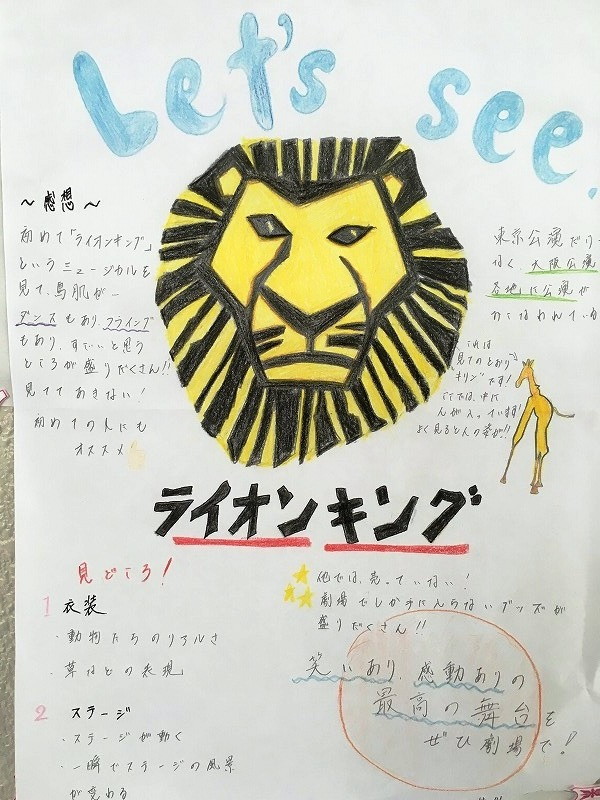 Let's see.
～感想～
初めて「ライオンキング」
というミュージカルを
見て、鳥肌が―
ダンスもあり、フライング
もあり、すごいと思う
ところが盛りだくさん!!
見ててあきない!
初めての人にも
オススメ
東京公演だけ
なく、大阪公演
各地に公演が
おこなわれている
これは
見てのとおり
キリンです!
ここでは、中に
人が入っています!
よく見ると人の姿が!!
ライオンキング
見どころ!
1 衣装
・動物たちのリアルさ
・草などの表現
2 ステージ
・ステージが動く
・一瞬でステージの風景
が変わる
他では、売っていない!
劇場でしか手に入らないグッズが
盛りだくさん!!
笑いあり、感動ありの
最高の舞台を
ぜひ劇場で!